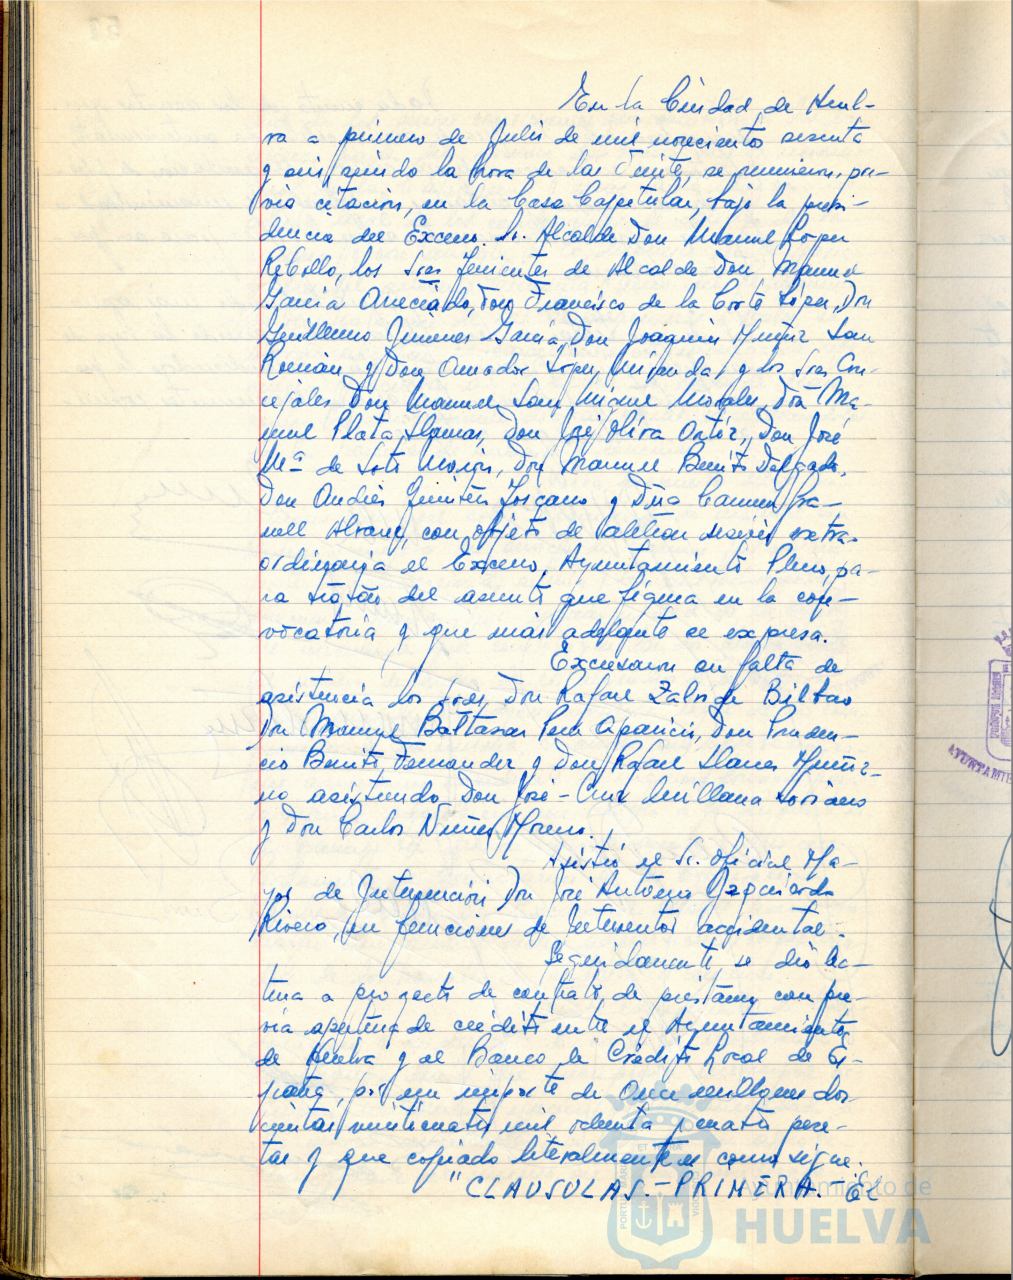 En la Ciudad de Huel-
va a primero de Julio de mil novecientos sesenta
y siendo la hora de las veinte, se reunieron, pre-
via citacion, en la Casa Capitular, bajo la presi-
dencia del Excmo. Sr. Alcalde Don Manuel López
Rebollo, los Sres Tenientes de Alcalde Don Manuel
García Don Francisco de la Corte López, Don
Guillermo Jimenez García, Don Joaquin Muñiz San
Román y Don Amador López Miranda, y los Sres Con-
cejales Don Manuel San Miguel Morales, Don Ma-
nuel Plata Llamas, Don José Oliva Ortiz, Don José
Mª de Soto Morón, Don Manuel Benito Delgado,
Don Andrés Toscano y Dña Carmen Gra-
nell Alvarez, con objeto de celebrar sesión extra-
ordinaria el Excmo. Ayuntamiento Pleno, pa-
ra tratar del asunto que figura en la con-
vocatoria y que más adelante se expresa.
Excusaron su falta de
asistencia los Sres Don Rafael Zalvide Bilbao
Don Manuel Baltasar Pera Aparicio, Don Pruden-
cio Benito Fernandez y Don Rafael Llanes Muñiz-
no asistiendo Don José-Cruz Millana Soriano
y Don Carlos Nuñez Moreno.
Asistió el Sr. Oficial Ma-
yor de Intervención Don José Antonio Izquierdo
Rivero, en funciones de Interventor accidental.
Seguidamente se dió lec-
tura a proyecto de contrato de préstamo con pre-
via apertura de crédito entre el Ayuntamiento
de Huelva y el Banco de Crédito Local de Es-
paña, por un importe de Once millones dos-
cientas veinticuatro mil ochenta y cuatro pese-
tas y que copiado literalmente es como sigue.
"CLAUSULAS.- PRIMERA.- El
Ayuntamiento de
HUELVA